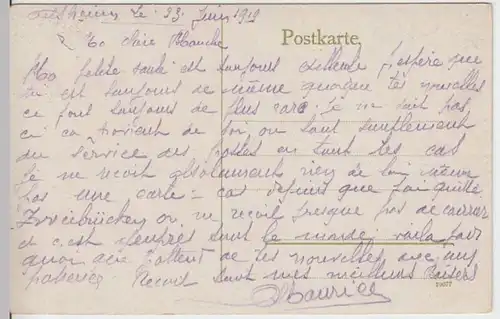 le 23 Juin 1919
Postkarte.
Ma chère Blanche
Ma petite santé est toujours excellente j'espère que
toi est toujours de même quoique tes nouvelles
ce font toujours de plus rare. Je ne sait pas
si ca provient de toi, ou sant simplement
du service des postes en tout les cas
je ne reçoit absolument rien de
pas une carte = cas depuis que j'ai quitté
Zweibrücken on ne reçoit presque pas de courrier
et c'est d'après tout le monde voila pour
quoi de tes nouvelles avec
patience Reçoit tout mes meilleurs baisers
Maurice